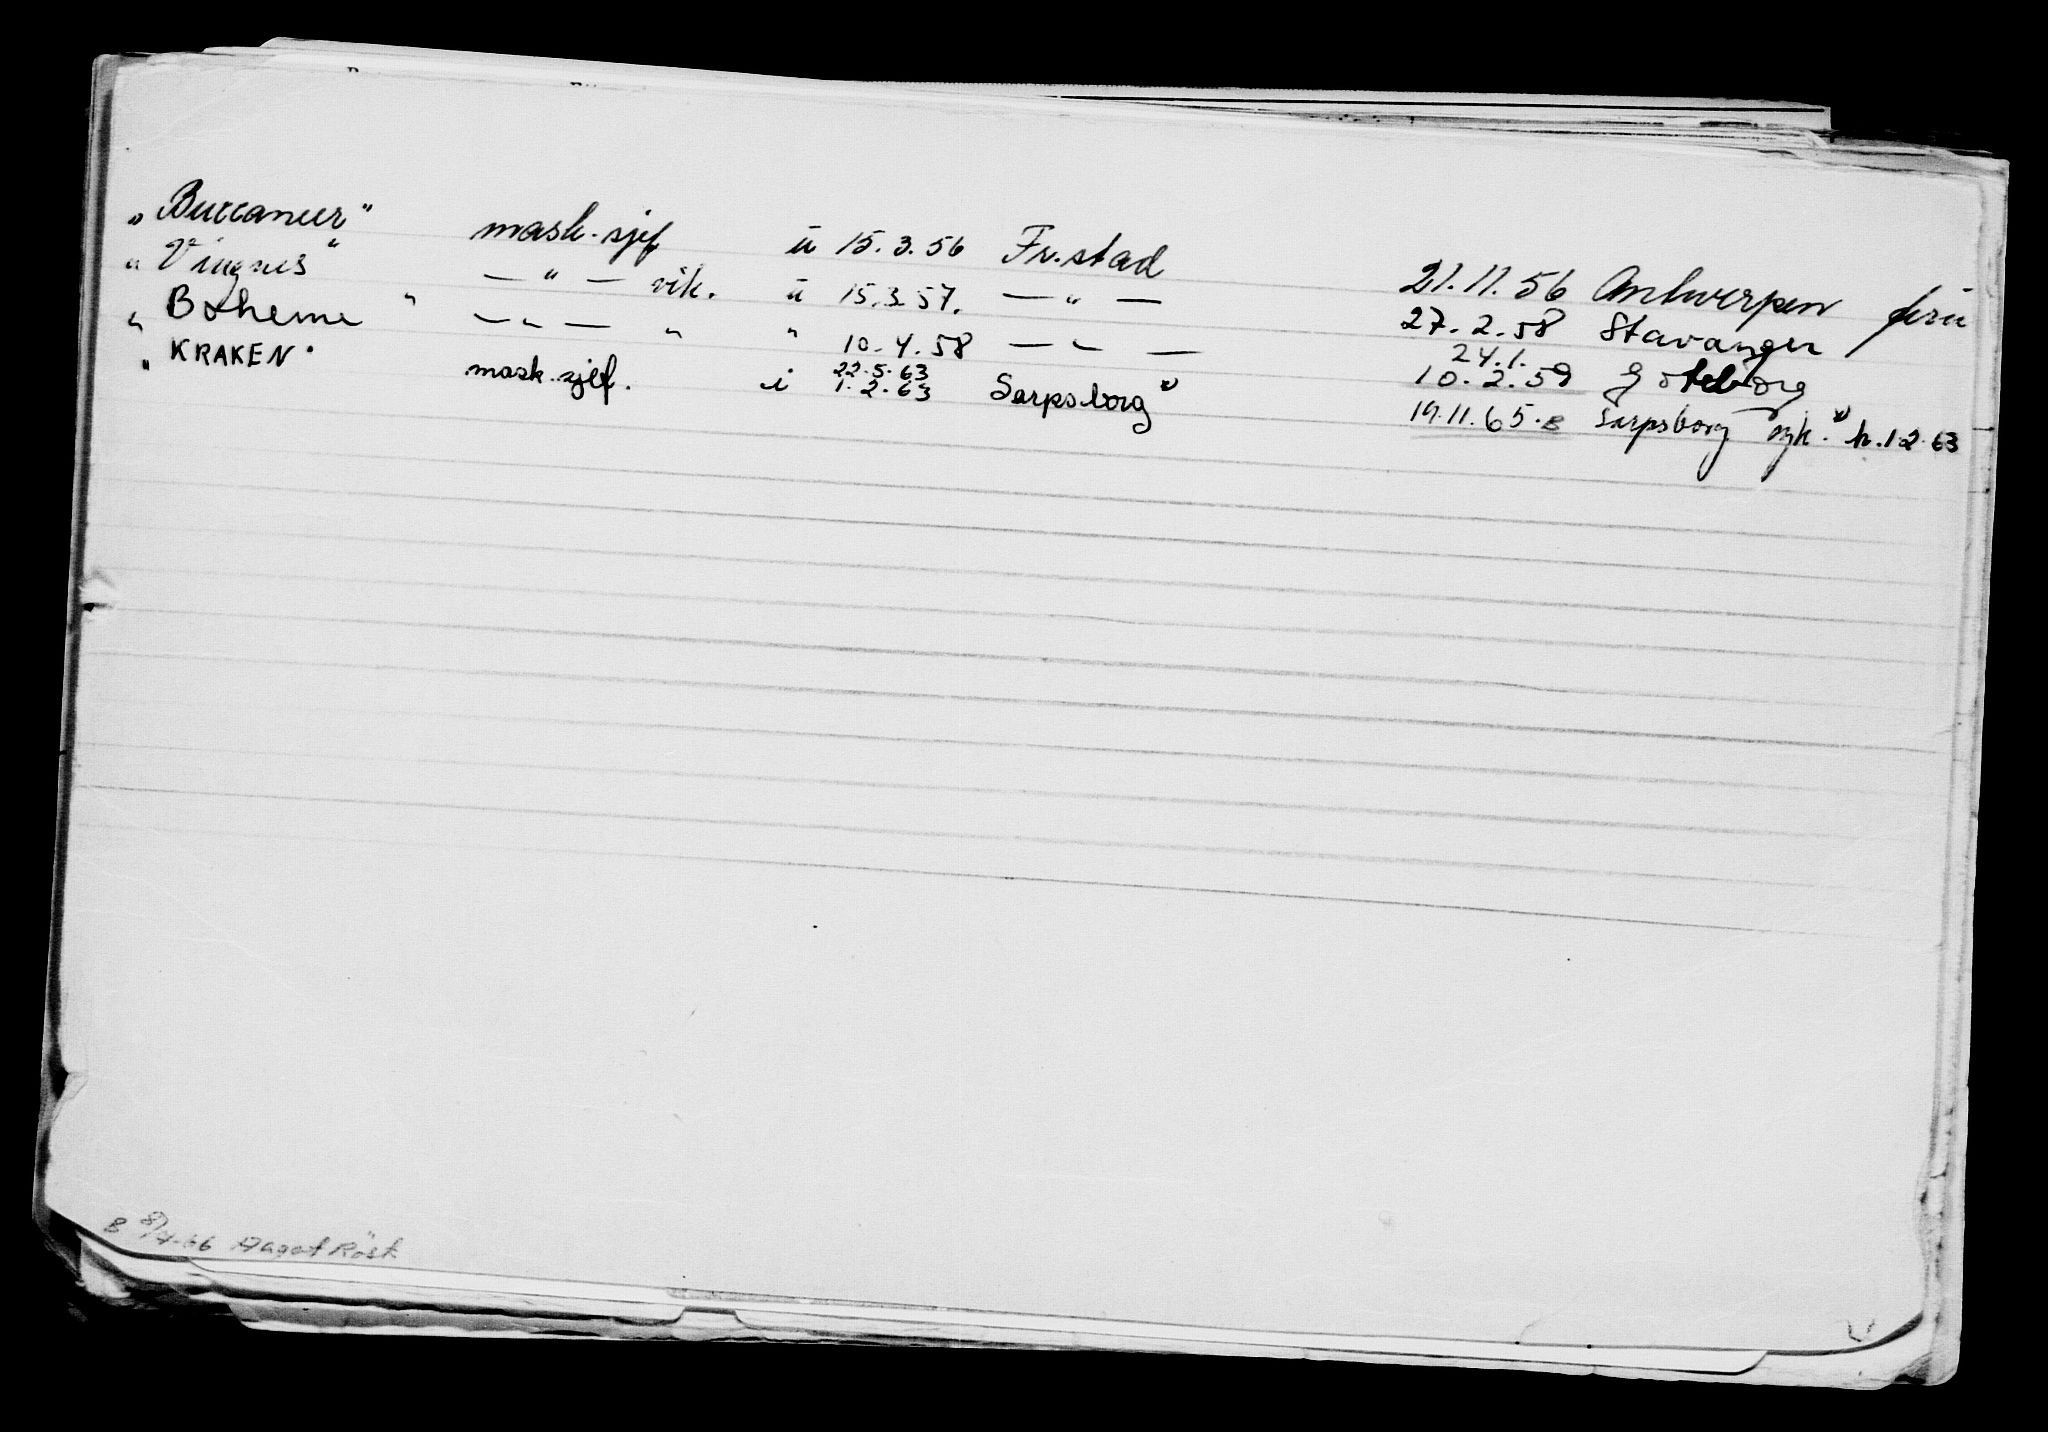 „ Buccaneer " mask. sjef u 15.3.56 Fr.stad 21.11.56 Antwerpen
„ Vingnes " — " — vik. u 15.3.57. — " — 27.2.58 Stavanger
„ Boheme " — " — " " 10.4.58 — " — 24.1. 10.2.59 Göteborg
„ KRAKEN " mask. sjef. i 22.5.63 1.2.63 Sarpsborg x) 19.11.65. B Sarpsborg syk. x) h. 1.2.63
B 8/4-66 Hagat Råsk